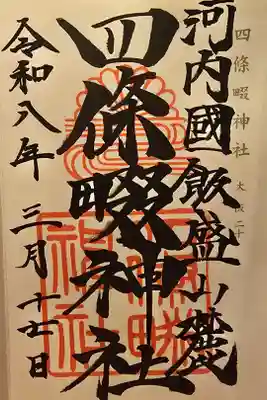 四條畷神社 大阪二十
河内國飯盛山麓
四條畷神社
令和八年 三月十七日